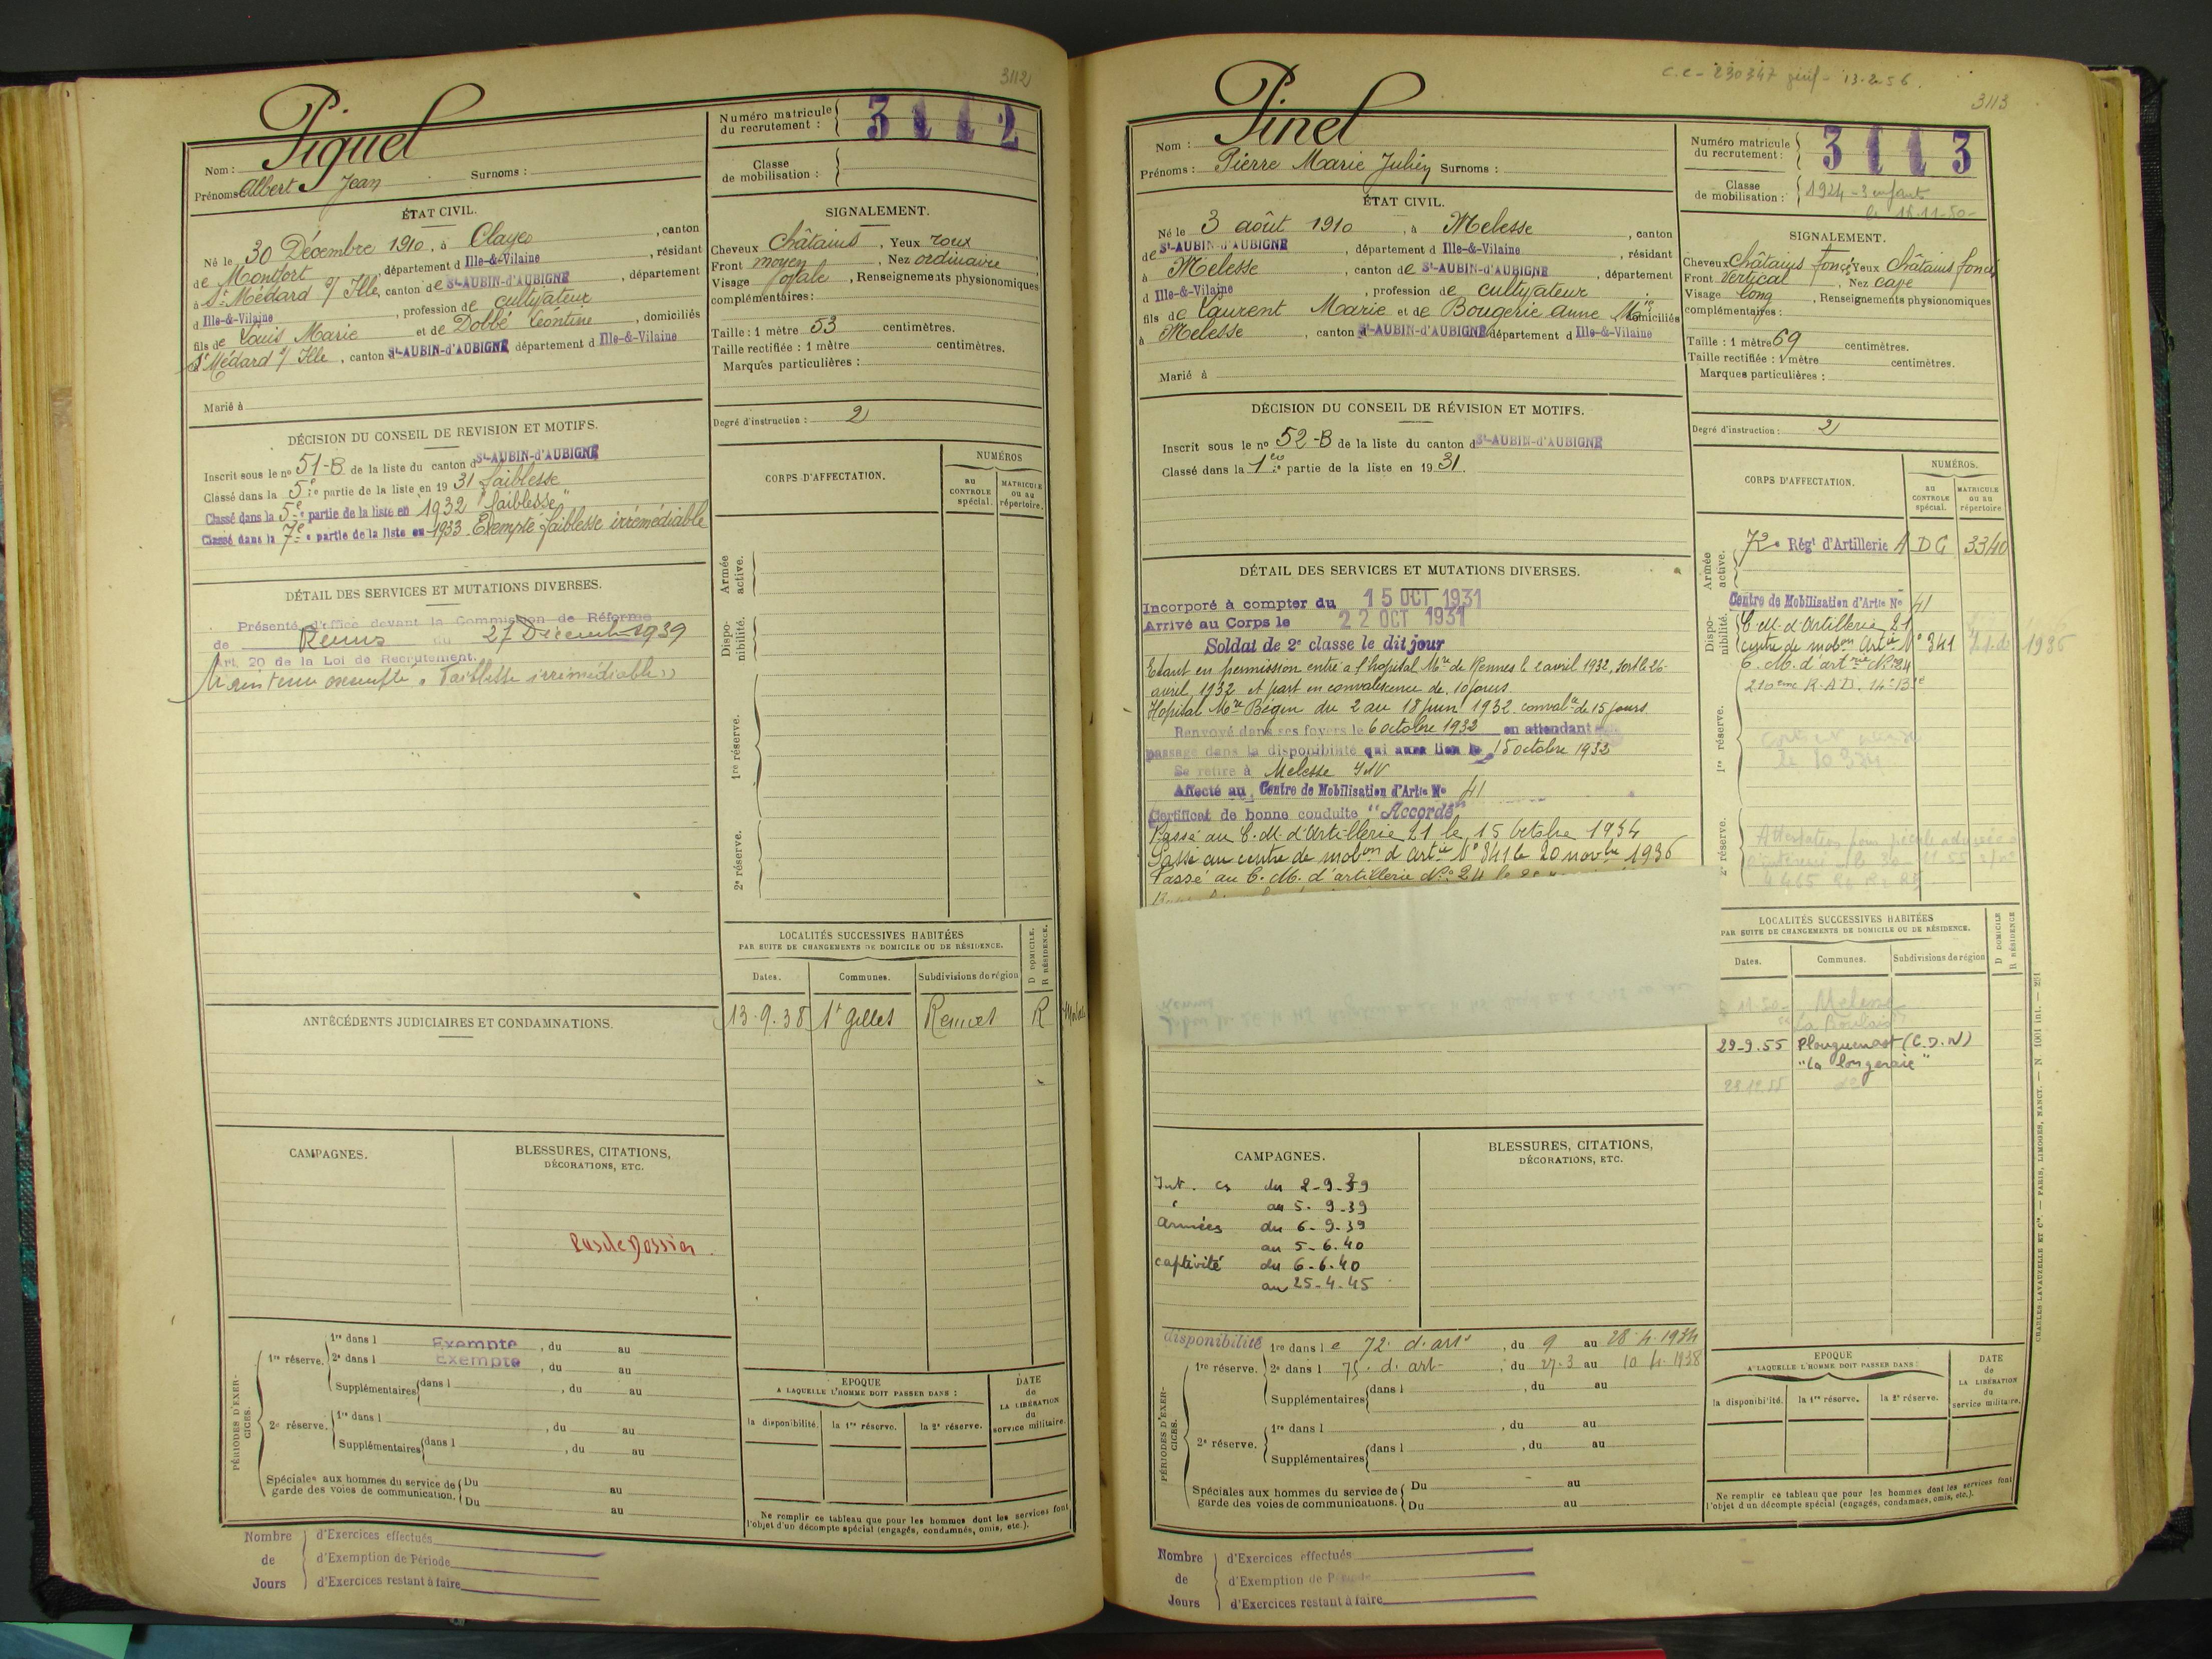 3112
Piquel
Nom :
Prénoms Albert Jean Surnoms :
Numéro matricule
du recrutement : 3112
Classe
de mobilisation :
ÉTAT CIVIL.
Né le 30 Décembre 1910, à Clayes, canton
de Montfort, département d Ille-&-Vilaine, résidant
à St Médard s/ Ille, canton de St-AUBIN-d'AUBIGNÉ, département
d Ille-&-Vilaine, profession de cultivateur
fils de Louis Marie et de Dobbé Léontine, domiciliés
à St Médard s/ Ille, canton St-AUBIN-d'AUBIGNÉ département d Ille-&-Vilaine
Marié à
SIGNALEMENT.
Cheveux Châtains, Yeux roux
Front moyen, Nez ordinaire
Visage ovale, Renseignements physionomiques
complémentaires :
Taille : 1 mètre 53 centimètres.
Taille rectifiée : 1 mètre centimètres.
Marques particulières :
Degré d'instruction : 2
DÉCISION DU CONSEIL DE REVISION ET MOTIFS.
Inscrit sous le no 51-B de la liste du canton d St-AUBIN-d'AUBIGNÉ
Classé dans la 5e partie de la liste en 19 31 faiblesse
Classé dans la 5e partie de la liste en 1932 "faiblesse"
Classé dans la 7e partie de la liste en 1933. Exempté faiblesse irrémédiable
DÉTAIL DES SERVICES ET MUTATIONS DIVERSES.
Présenté d'office devant la Commission de Réforme
de Rennes du 27 Décemb 1939
Art. 20 de la Loi de Recrutement.
Maintenu exempté. Faiblesse irrémédiable
CORPS D'AFFECTATION.
NUMÉROS
au
CONTROLE
spécial.
MATRICULE
ou au
répertoire.
Armée
active.
Dispo-
nibilité.
1re réserve.
2e réserve.
LOCALITÉS SUCCESSIVES HABITÉES
PAR SUITE DE CHANGEMENTS DE DOMICILE OU DE RÉSIDENCE.
D DOMICILE.
R RÉSIDENCE.
Dates. Communes. Subdivisions de région
13-9-38 St Gilles Rennes R
ANTÉCÉDENTS JUDICIAIRES ET CONDAMNATIONS.
CAMPAGNES.
BLESSURES, CITATIONS,
DÉCORATIONS, ETC.
Pas de Dossier.
PÉRIODES D'EXER-
CICES.
1re réserve. 1re dans l Exempté, du au
2e dans l Exempté, du au
Supplémentaires dans l, du au
2e réserve. 1re dans l, du au
Supplémentaires dans l, du au
Spéciales aux hommes du service de
garde des voies de communication. Du au
Du au
EPOQUE
A LAQUELLE L'HOMME DOIT PASSER DANS :
la disponibilité. la 1re réserve. la 2e réserve.
DATE
de
LA LIBÉRATION
du
service militaire.
Ne remplir ce tableau que pour les hommes dont les services font
l'objet d'un décompte spécial (engagés, condamnés, omis, etc.).
Nombre
de
Jours
d'Exercices effectués
d'Exemption de Période
d'Exercices restant à faire
C.C - 230347 13-2-56.
3113
Pinel
Nom :
Prénoms : Pierre Marie Julien Surnoms :
Numéro matricule
du recrutement : 3113
Classe
de mobilisation : 1924 - 3 enfants
le 18-11-50-
ÉTAT CIVIL.
Né le 3 août 1910, à Melesse, canton
de St-AUBIN-d'AUBIGNÉ, département d Ille-&-Vilaine, résidant
à Melesse, canton de St-AUBIN-d'AUBIGNÉ, département
d Ille-&-Vilaine, profession de cultivateur
fils de Laurent Marie et de Bougerie Anne Mie domiciliés
à Melesse, canton St-AUBIN-d'AUBIGNÉ département d Ille-&-Vilaine
Marié à
SIGNALEMENT.
Cheveux Châtains foncés Yeux Châtains foncés
Front Vertical, Nez cave
Visage long, Renseignements physionomiques
complémentaires :
Taille : 1 mètre 69 centimètres.
Taille rectifiée : 1 mètre centimètres.
Marques particulières :
Degré d'instruction : 2
DÉCISION DU CONSEIL DE RÉVISION ET MOTIFS.
Inscrit sous le no 52-B de la liste du canton d St-AUBIN-d'AUBIGNÉ
Classé dans la 1ère partie de la liste en 19 31.
DÉTAIL DES SERVICES ET MUTATIONS DIVERSES.
Incorporé à compter du 15 OCT 1931
Arrivé au Corps le 22 OCT 1931
Soldat de 2e classe le dit jour
Etant en permission entré à l'hopital Mre de Rennes le 2 avril 1932, sort le 26
avril 1932 et part en convalescence de 10 jours.
Hopital Mre Bégin du 2 au 18 juin 1932. convalce de 15 jours
Renvoyé dans ses foyers le 6 octobre 1932 en attendant
passage dans la disponibilité qui aura lieu le 15 octobre 1932
Se retire à Melesse I&V
Affecté au Centre de Mobilisation d'Artie No 41
Certificat de bonne conduite "Accordé"
Passé au C.M. d'Artillerie 21 le 15 Octobre 1934
Passé au centre de mobon d'artie No 341 le 20 novbre 1936
Passé au C.M. d'artillerie No 24 le
CORPS D'AFFECTATION.
NUMÉROS.
au
CONTROLE
spécial.
MATRICULE
ou au
répertoire
Armée
active.
72e Régt d'Artillerie A D C 3340
Dispo-
nibilité.
Centre de Mobilisation d'Artie No 41
C.M. d'Artillerie 21
centre de mobon Artie No 341
C.M. d'artrie No 24
1936
1re réserve.
210ème R.A.D. 14e Bie
2e réserve.
LOCALITÉS SUCCESSIVES HABITÉES
PAR SUITE DE CHANGEMENTS DE DOMICILE OU DE RÉSIDENCE.
D DOMICILE
R RÉSIDENCE
Dates. Communes. Subdivisions de région
11-50- Melesse
"La Boulais"
29-9.55 Plouguenast (C.D.N)
"La longeraie"
CAMPAGNES.
Int. cs du 2-9-39
" au 5-9-39
Armées du 6-9-39
au 5-6-40
captivité du 6-6-40
au 25-4-45
BLESSURES, CITATIONS,
DÉCORATIONS, ETC.
PÉRIODES D'EXER-
CICES.
disponibilité 1re dans le 72e d'artie, du 9 au 28-4-1934
1re réserve. 2e dans l 75e d'art, du 27-3 au 10-4-1938
Supplémentaires dans l, du au
2e réserve. 1re dans l, du au
Supplémentaires dans l, du au
Spéciales aux hommes du service de
garde des voies de communications. Du au
Du au
EPOQUE
A LAQUELLE L'HOMME DOIT PASSER DANS :
la disponibilité. la 1re réserve. la 2e réserve.
DATE
de
LA LIBÉRATION
du
service militaire.
Ne remplir ce tableau que pour les hommes dont les services font
l'objet d'un décompte spécial (engagés, condamnés, omis, etc.).
CHARLES-LAVAUZELLE ET Cie. — PARIS, LIMOGES, NANCY. — N. 1001 int. — 251
Nombre
de
Jours
d'Exercices effectués
d'Exemption de Période
d'Exercices restant à faire